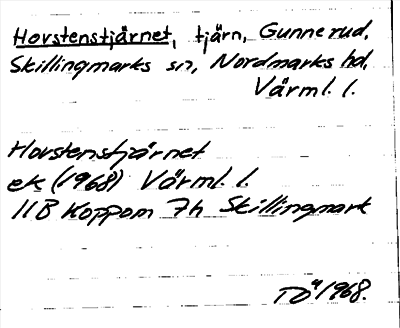 Horstenstjärnet, tjärn, Gunnerud,
Skillingmarks sn, Nordmarks hd,
Värml. l.
Horstenstjärnet
ek (1968) Värml. l.
11B Koppom 7h Skillingmark
1968.